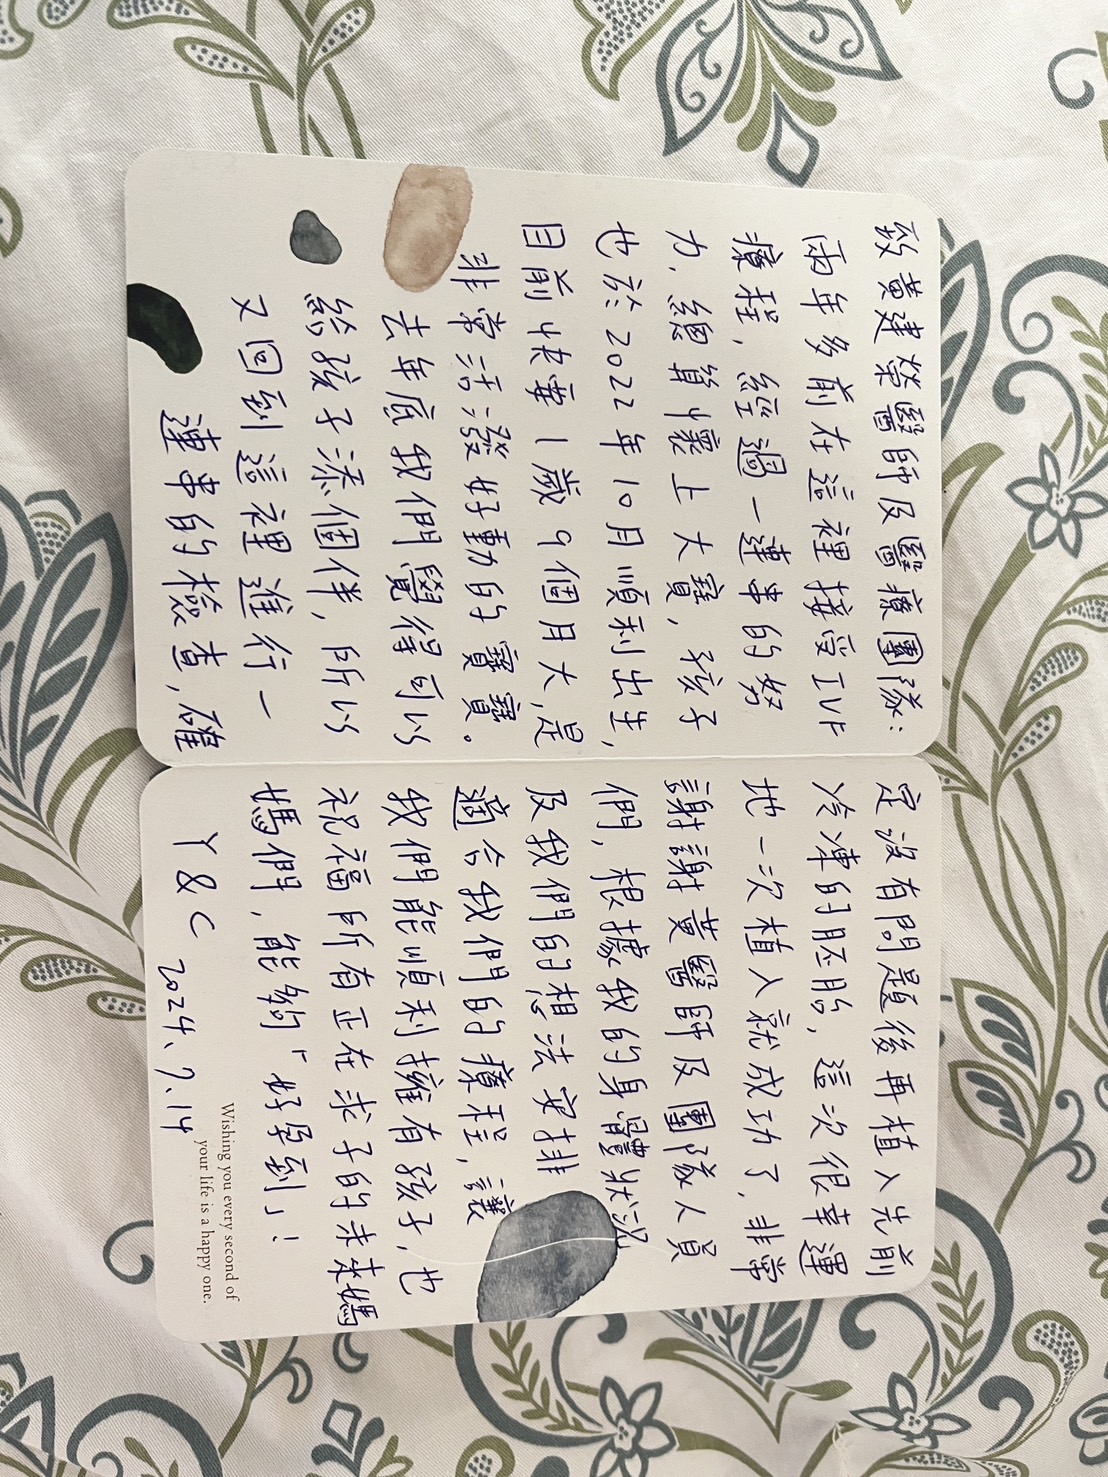 致黃建榮醫師及醫療團隊:
兩年多前在這裡接受IVF
療程,經過一連串的努
力,總算懷上大寶,孩子
也於2022年10月順利出生,
目前快要1歲9個月大,是
非常活潑好動的寶寶。
去年底我們覺得可以
給孩子添個伴,所以
又回到這裡進行一
連串的檢查,確
定沒有問題後再植入先前
冷凍的胚胎,這次很幸運
地一次植入就成功了,非常
謝謝黃醫師及團隊人員
們,根據我的身體狀況
及我們的想法安排
適合我們的療程,讓
我們能順利擁有孩子,也
祝福所有正在求子的未來媽
媽們,能夠「好孕到」!
Y & C 2024.7.14
Wishing you every second of
your life is a happy one.